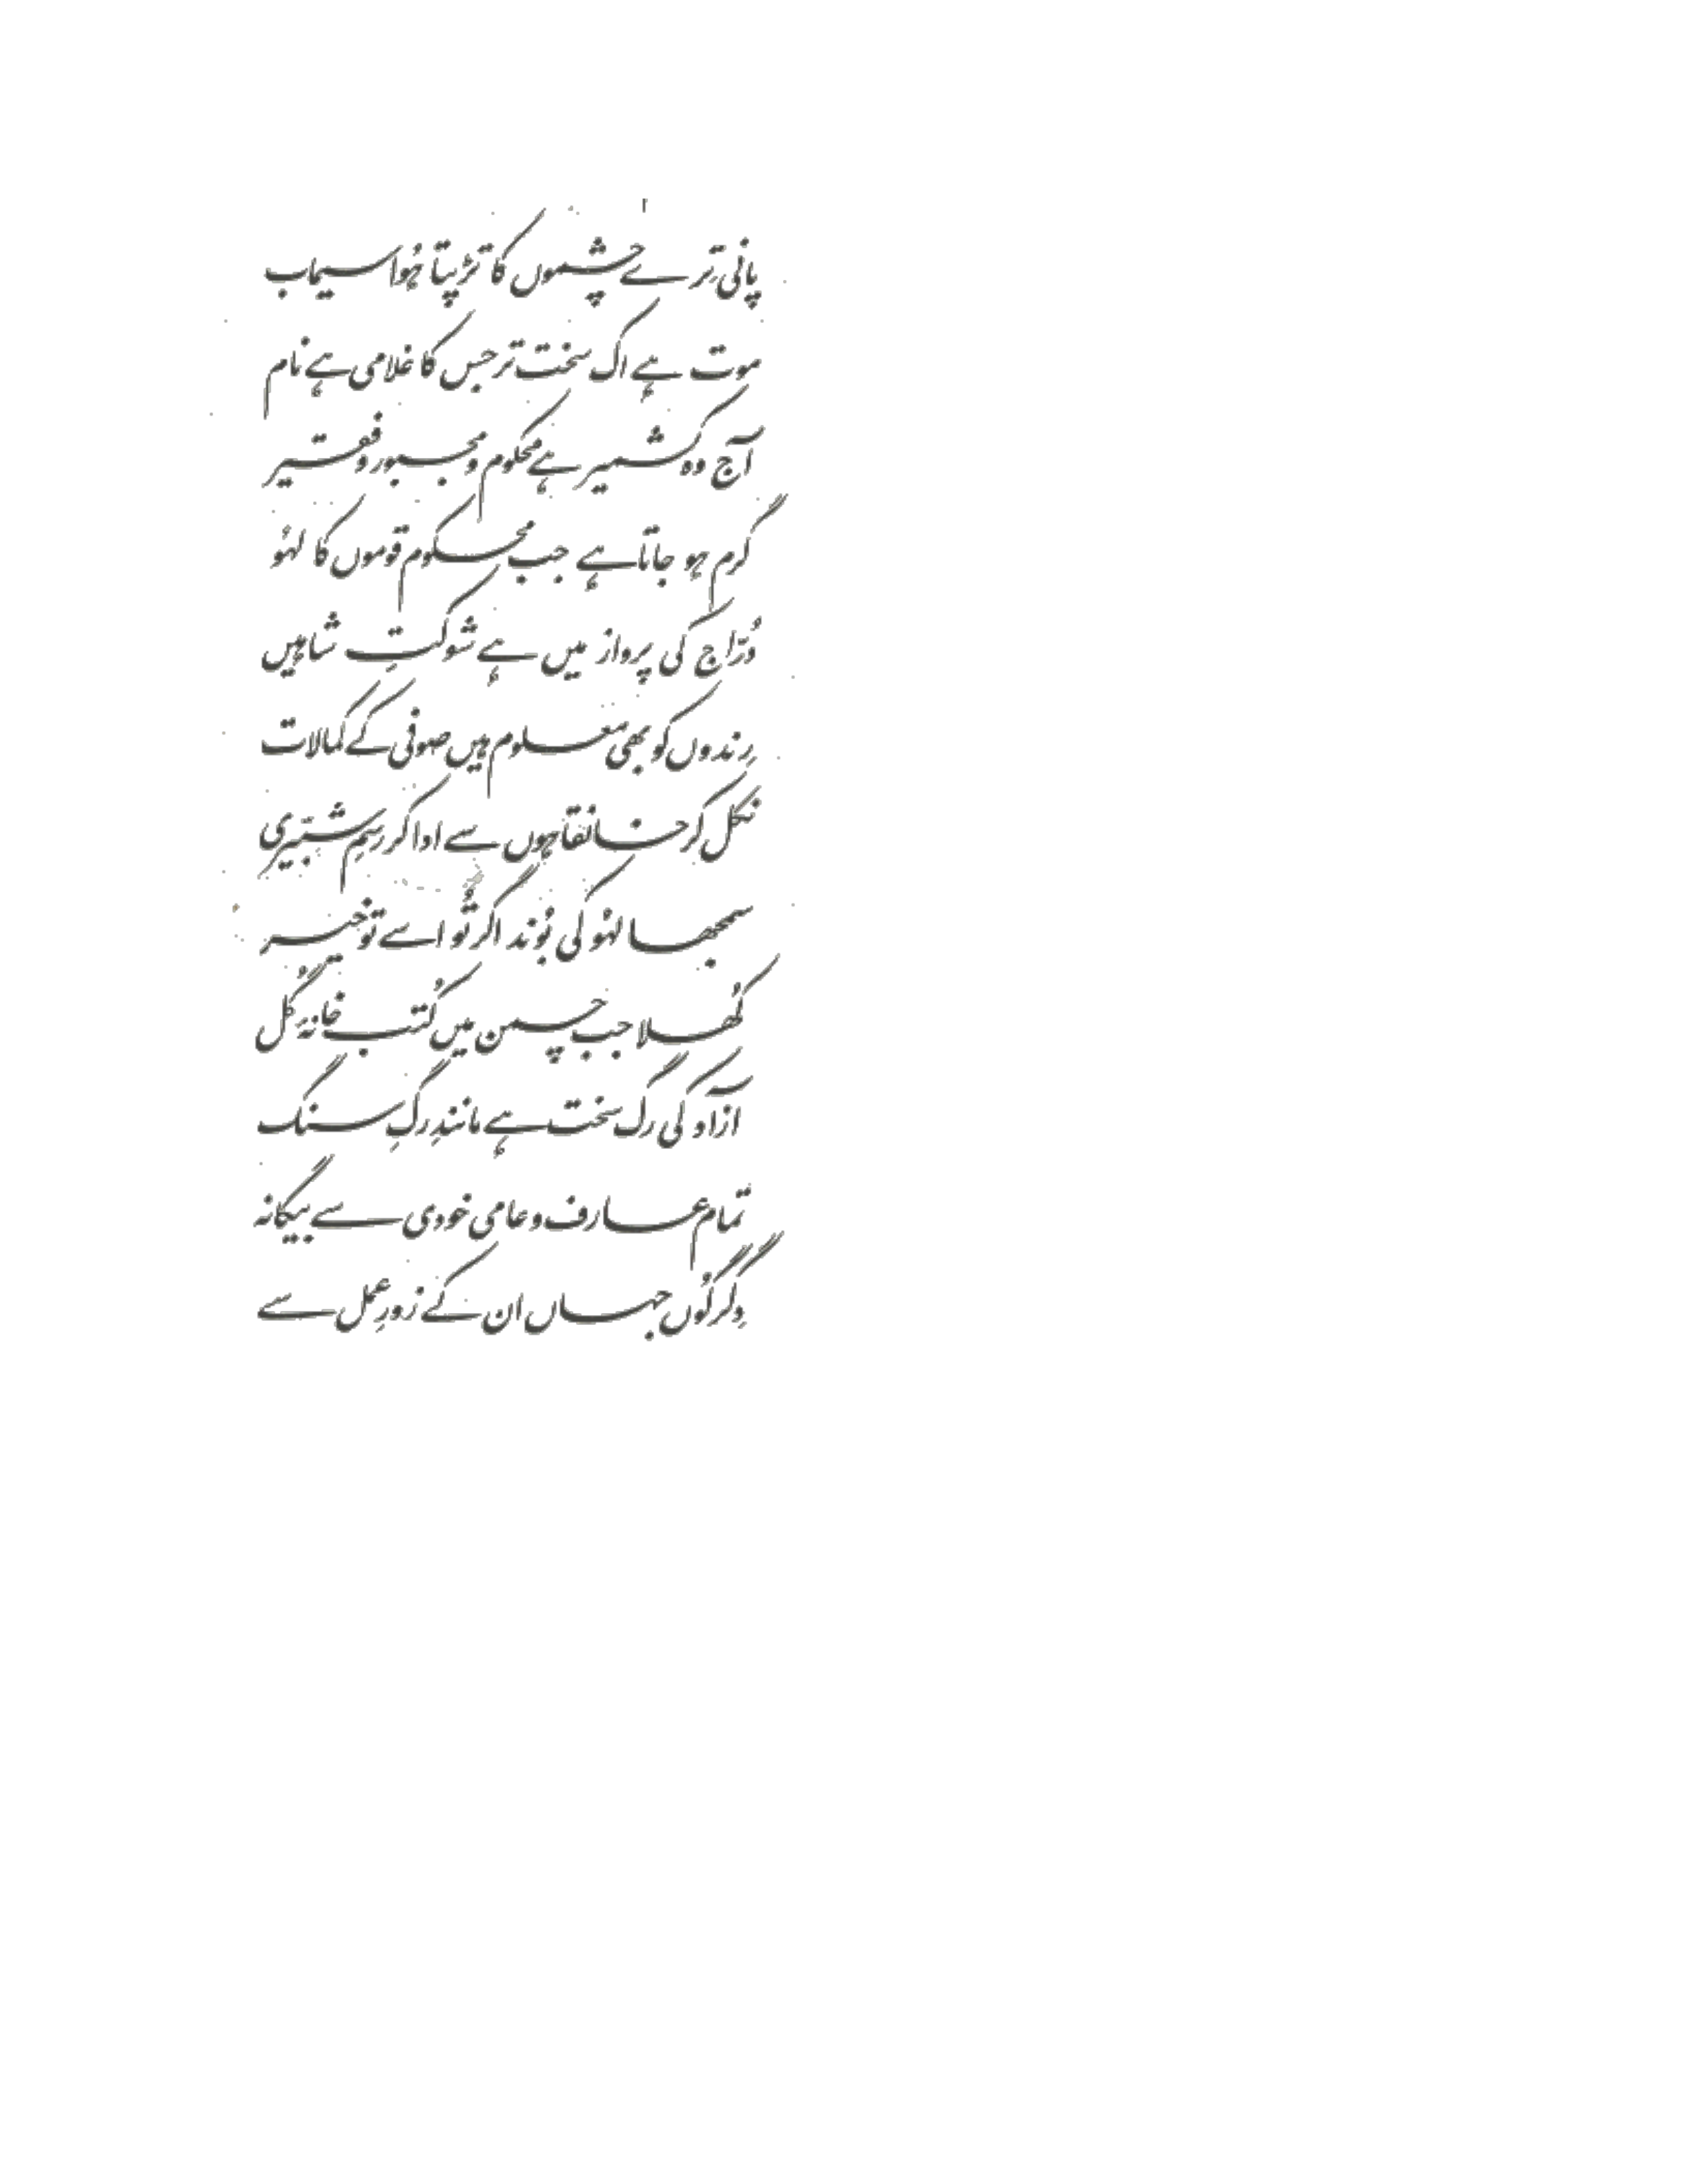 پانی ترے چشموں کا تڑپتا ہُوا سیماب
موت ہے اک سخت تر جس کا غلامی ہے نام
آج وہ کشمیر ہے محکوم و مجبور و فقیر
گرم ہو جاتا ہے جب محکوم قوموں کا لہُو
دُرّاج کی پرواز میں ہے شوکتِ شاہیں
رِندوں کو بھی معلوم ہیں صوفی کے کمالات
نکل کر خانقاہوں سے ادا کر رسمِ شبّیری
سمجھا لہُو کی بُوند اگر تُو اسے تو خیر
کُھلا جب چمن میں کُتب خانۂ گُل
آزاد کی رگ سخت ہے مانندِ رگِ سنگ
تمام عارف و عامی خودی سے بیگانہ
دِگرگُوں جہاں ان کے زورِ عمل سے